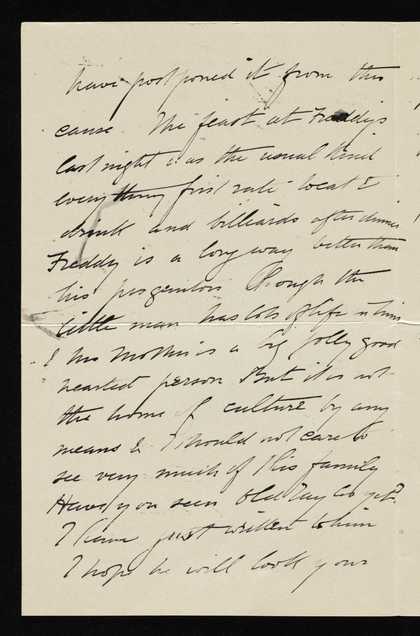 have postponed it from this
cause. The feast at Freddy's
last night was the usual kind
everything first rate to eat &
drink and billiards after dinner
Freddy is a long way better than
his progenitors though the
little man has lots of life in him
& his mother is a big jolly good
hearted person But it is not
the home of culture by any
means & I should not care to
see very much of this family
Have you seen Old Taylor yet?
I have just written to him
I hope he will look you